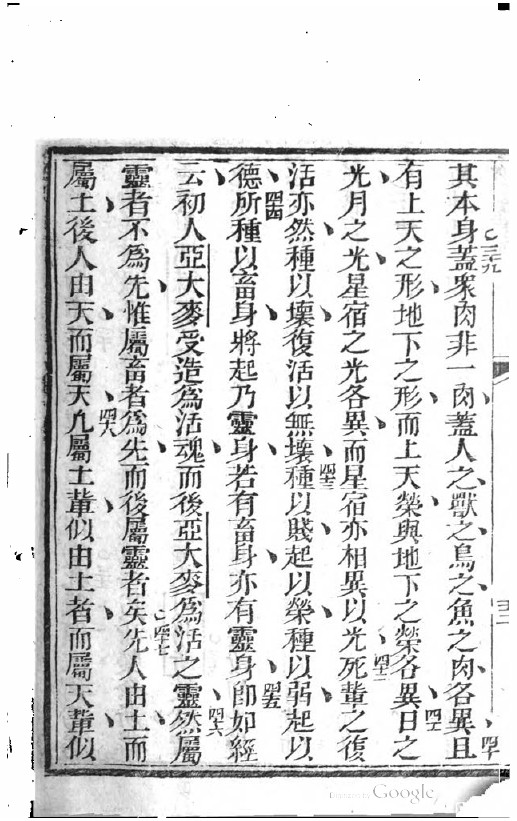 其本身蓋衆肉非一肉蓋人之獸之鳥之魚之肉各異且
三十九
四十
有上天之形地下之形而上天榮與地下之榮各異日之
四一
光月之光星宿之光各異而星宿亦相異以光死輩之復
四十二
活亦然種以壞復活以無壞種以賤起以榮種以弱起以
四十三
德所種以畜身將起乃靈身若有畜身亦有靈身即如經
四十四
四十五
云初人亞大麥受造為活魂而後亞大麥為活之靈然屬
四十六
靈者不為先惟屬畜者為先而後屬靈者矣先人由土而
四十七
屬土後人由天而屬天凡屬土輩似由土者而屬天輩似
四十八
Digitized by Google